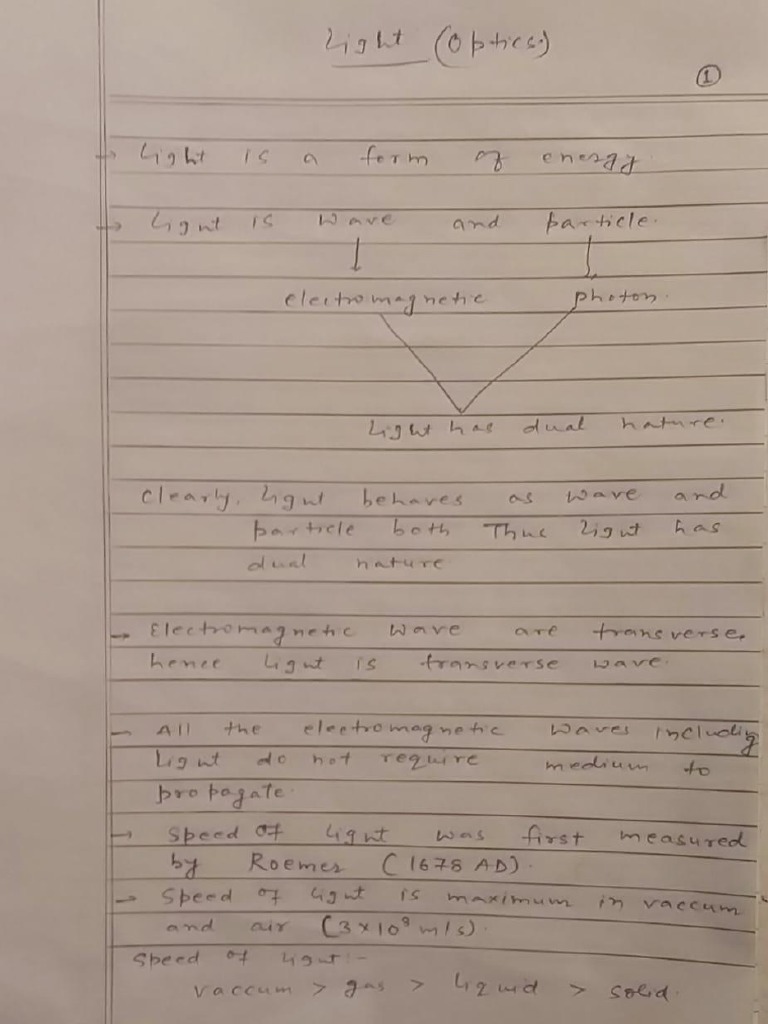 Light (Optics)
1
→ Light is a form of energy.
→ Light is wave and particle.
electromagnetic photon.
Light has dual nature.
Clearly, light behaves as wave and
particle both Thus light has
dual nature
→ Electromagnetic wave are transverse,
hence light is transverse wave.
→ All the electromagnetic waves including
light do not require medium to
propagate.
→ Speed of light was first measured
by Roemer (1678 AD).
→ Speed of light is maximum in vaccum
and air (3×10⁸ m/s).
Speed of light :-
vaccum > gas > liquid > solid.